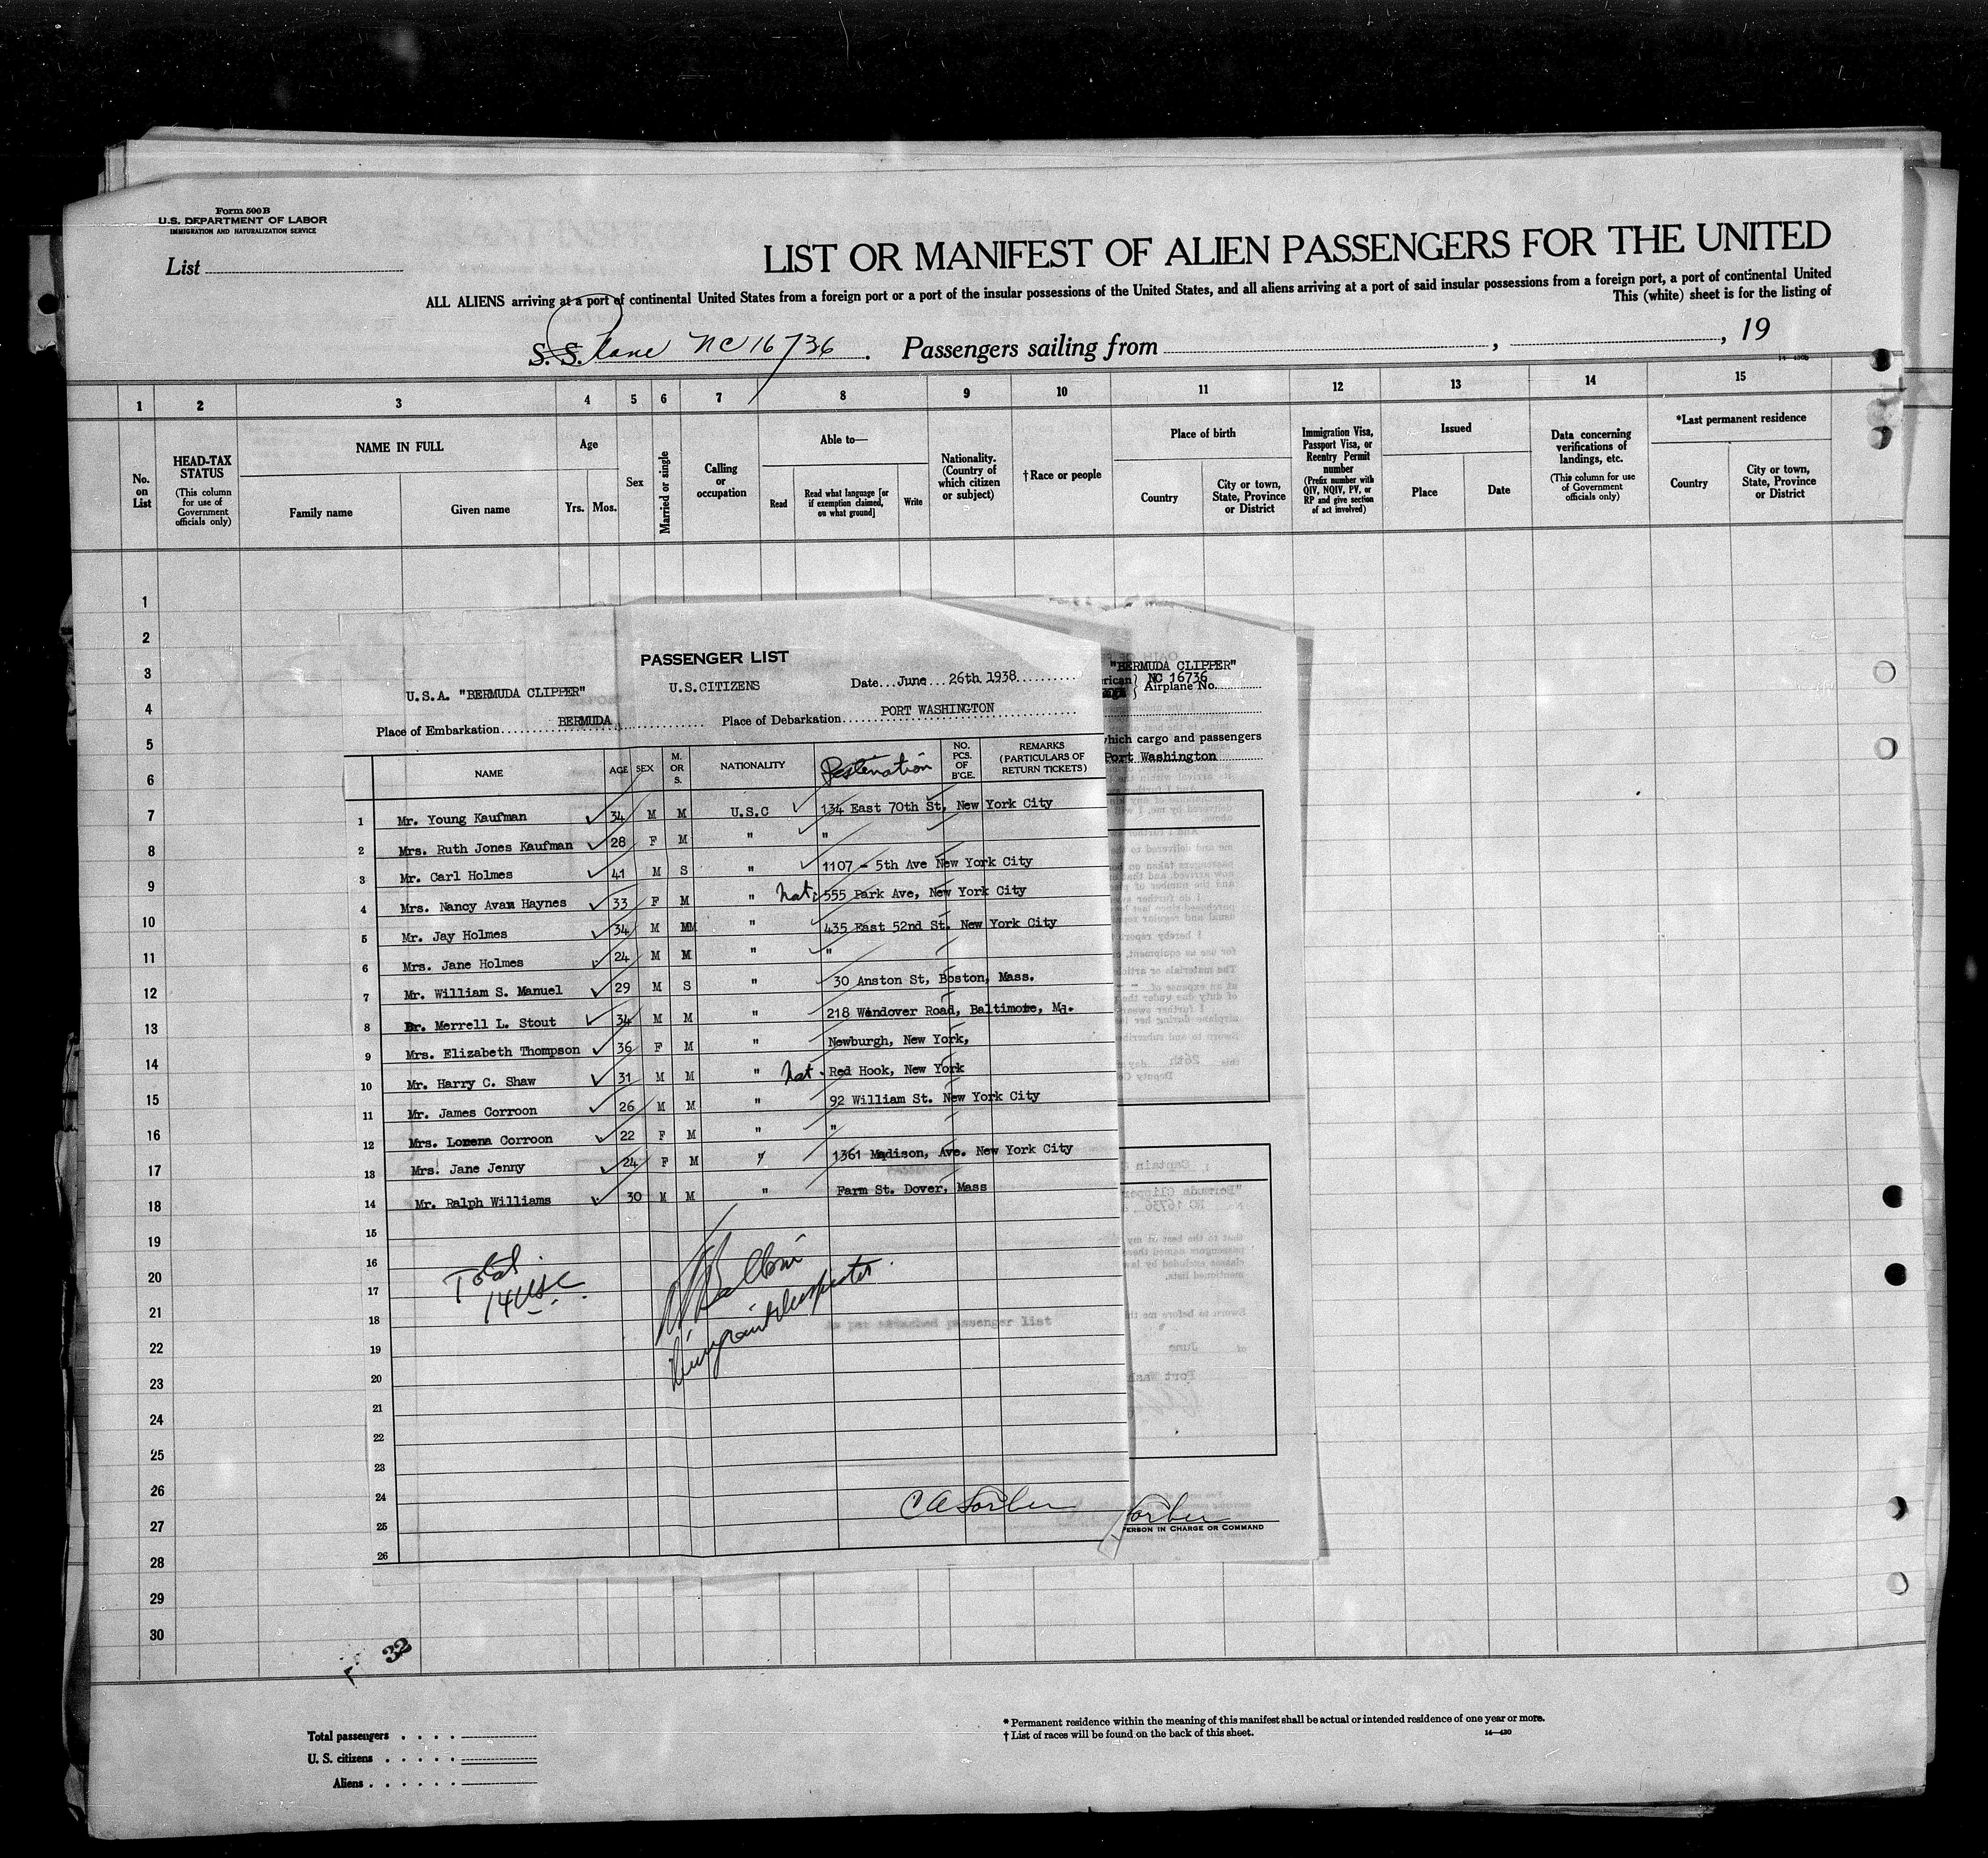 Form 500 B
U.S. DEPARTMENT OF LABOR
IMMIGRATION AND NATURALIZATION SERVICE
List
LIST OR MANIFEST OF ALIEN PASSENGERS FOR THE UNITED
ALL ALIENS arriving at a port of continental United States from a foreign port or a port of the insular possessions of the United States, and all aliens arriving at a port of said insular possessions from a foreign port, a port of continental United
This (white) sheet is for the listing of
S. S. Plane NC 16736. Passengers sailing from , , 19
14—430b
1 2 3 4 5 6 7 8 9 10 11 12 13 14 15
No. on List
HEAD-TAX STATUS
(This column for use of Government officials only)
NAME IN FULL
Family name Given name
Age
Yrs. Mos.
Sex
Married or single
Calling or occupation
Able to—
Read
Read what language [or if exemption claimed, on what ground]
Write
Nationality. (Country of which citizen or subject)
† Race or people
Place of birth
Country
City or town, State, Province or District
Immigration Visa, Passport Visa, or Reentry Permit number
(Prefix number with QIV, NQIV, PV, or RP and give section of act involved)
Issued
Place Date
Data concerning verifications of landings, etc.
(This column for use of Government officials only)
*Last permanent residence
Country
City or town, State, Province or District
1
2
3
4
5
6
7
8
9
10
11
12
13
14
15
16
17
18
19
20
21
22
23
24
25
26
27
28
29
30
PASSENGER LIST
U.S.A. "BERMUDA CLIPPER" U.S.CITIZENS Date June 26th 1938
Place of Embarkation BERMUDA Place of Debarkation PORT WASHINGTON
NAME AGE SEX M. OR S. NATIONALITY Destination NO. PCS. OF B'GE. REMARKS (PARTICULARS OF RETURN TICKETS)
1 Mr. Young Kaufman 34 M M U.S.C 134 East 70th St, New York City
2 Mrs. Ruth Jones Kaufman 28 F M " "
3 Mr. Carl Holmes 41 M S " 1107 - 5th Ave New York City
4 Mrs. Nancy Avam Haynes 33 F M " Nat: 555 Park Ave, New York City
5 Mr. Jay Holmes 34 M MM " 435 East 52nd St. New York City
6 Mrs. Jane Holmes 24 M M " "
7 Mr. William S. Manuel 29 M S " 30 Anston St, Boston, Mass.
8 Dr. Merrell L. Stout 34 M M " 218 Wendover Road, Baltimore, Md.
9 Mrs. Elizabeth Thompson 36 F M " Newburgh, New York,
10 Mr. Harry C. Shaw 31 M M " Nat. Red Hook, New York
11 Mr. James Corroon 26 M M " 92 William St. New York City
12 Mrs. Lorena Corroon 22 F M " "
13 Mrs. Jane Jenny 24 F M " 1361 Madison, Ave. New York City
14 Mr. Ralph Williams 30 M M " Farm St. Dover, Mass
15
16
17
18
19
20
21
22
23
24
25
26
Total
14 USC
Immigrant Inspector.
As per attached passenger list
"BERMUDA CLIPPER"
NC 16736
Airplane No.
which cargo and passengers
Port Washington
PERSON IN CHARGE OR COMMAND
32
Total passengers
U. S. citizens
Aliens
* Permanent residence within the meaning of this manifest shall be actual or intended residence of one year or more.
† List of races will be found on the back of this sheet.
14—430